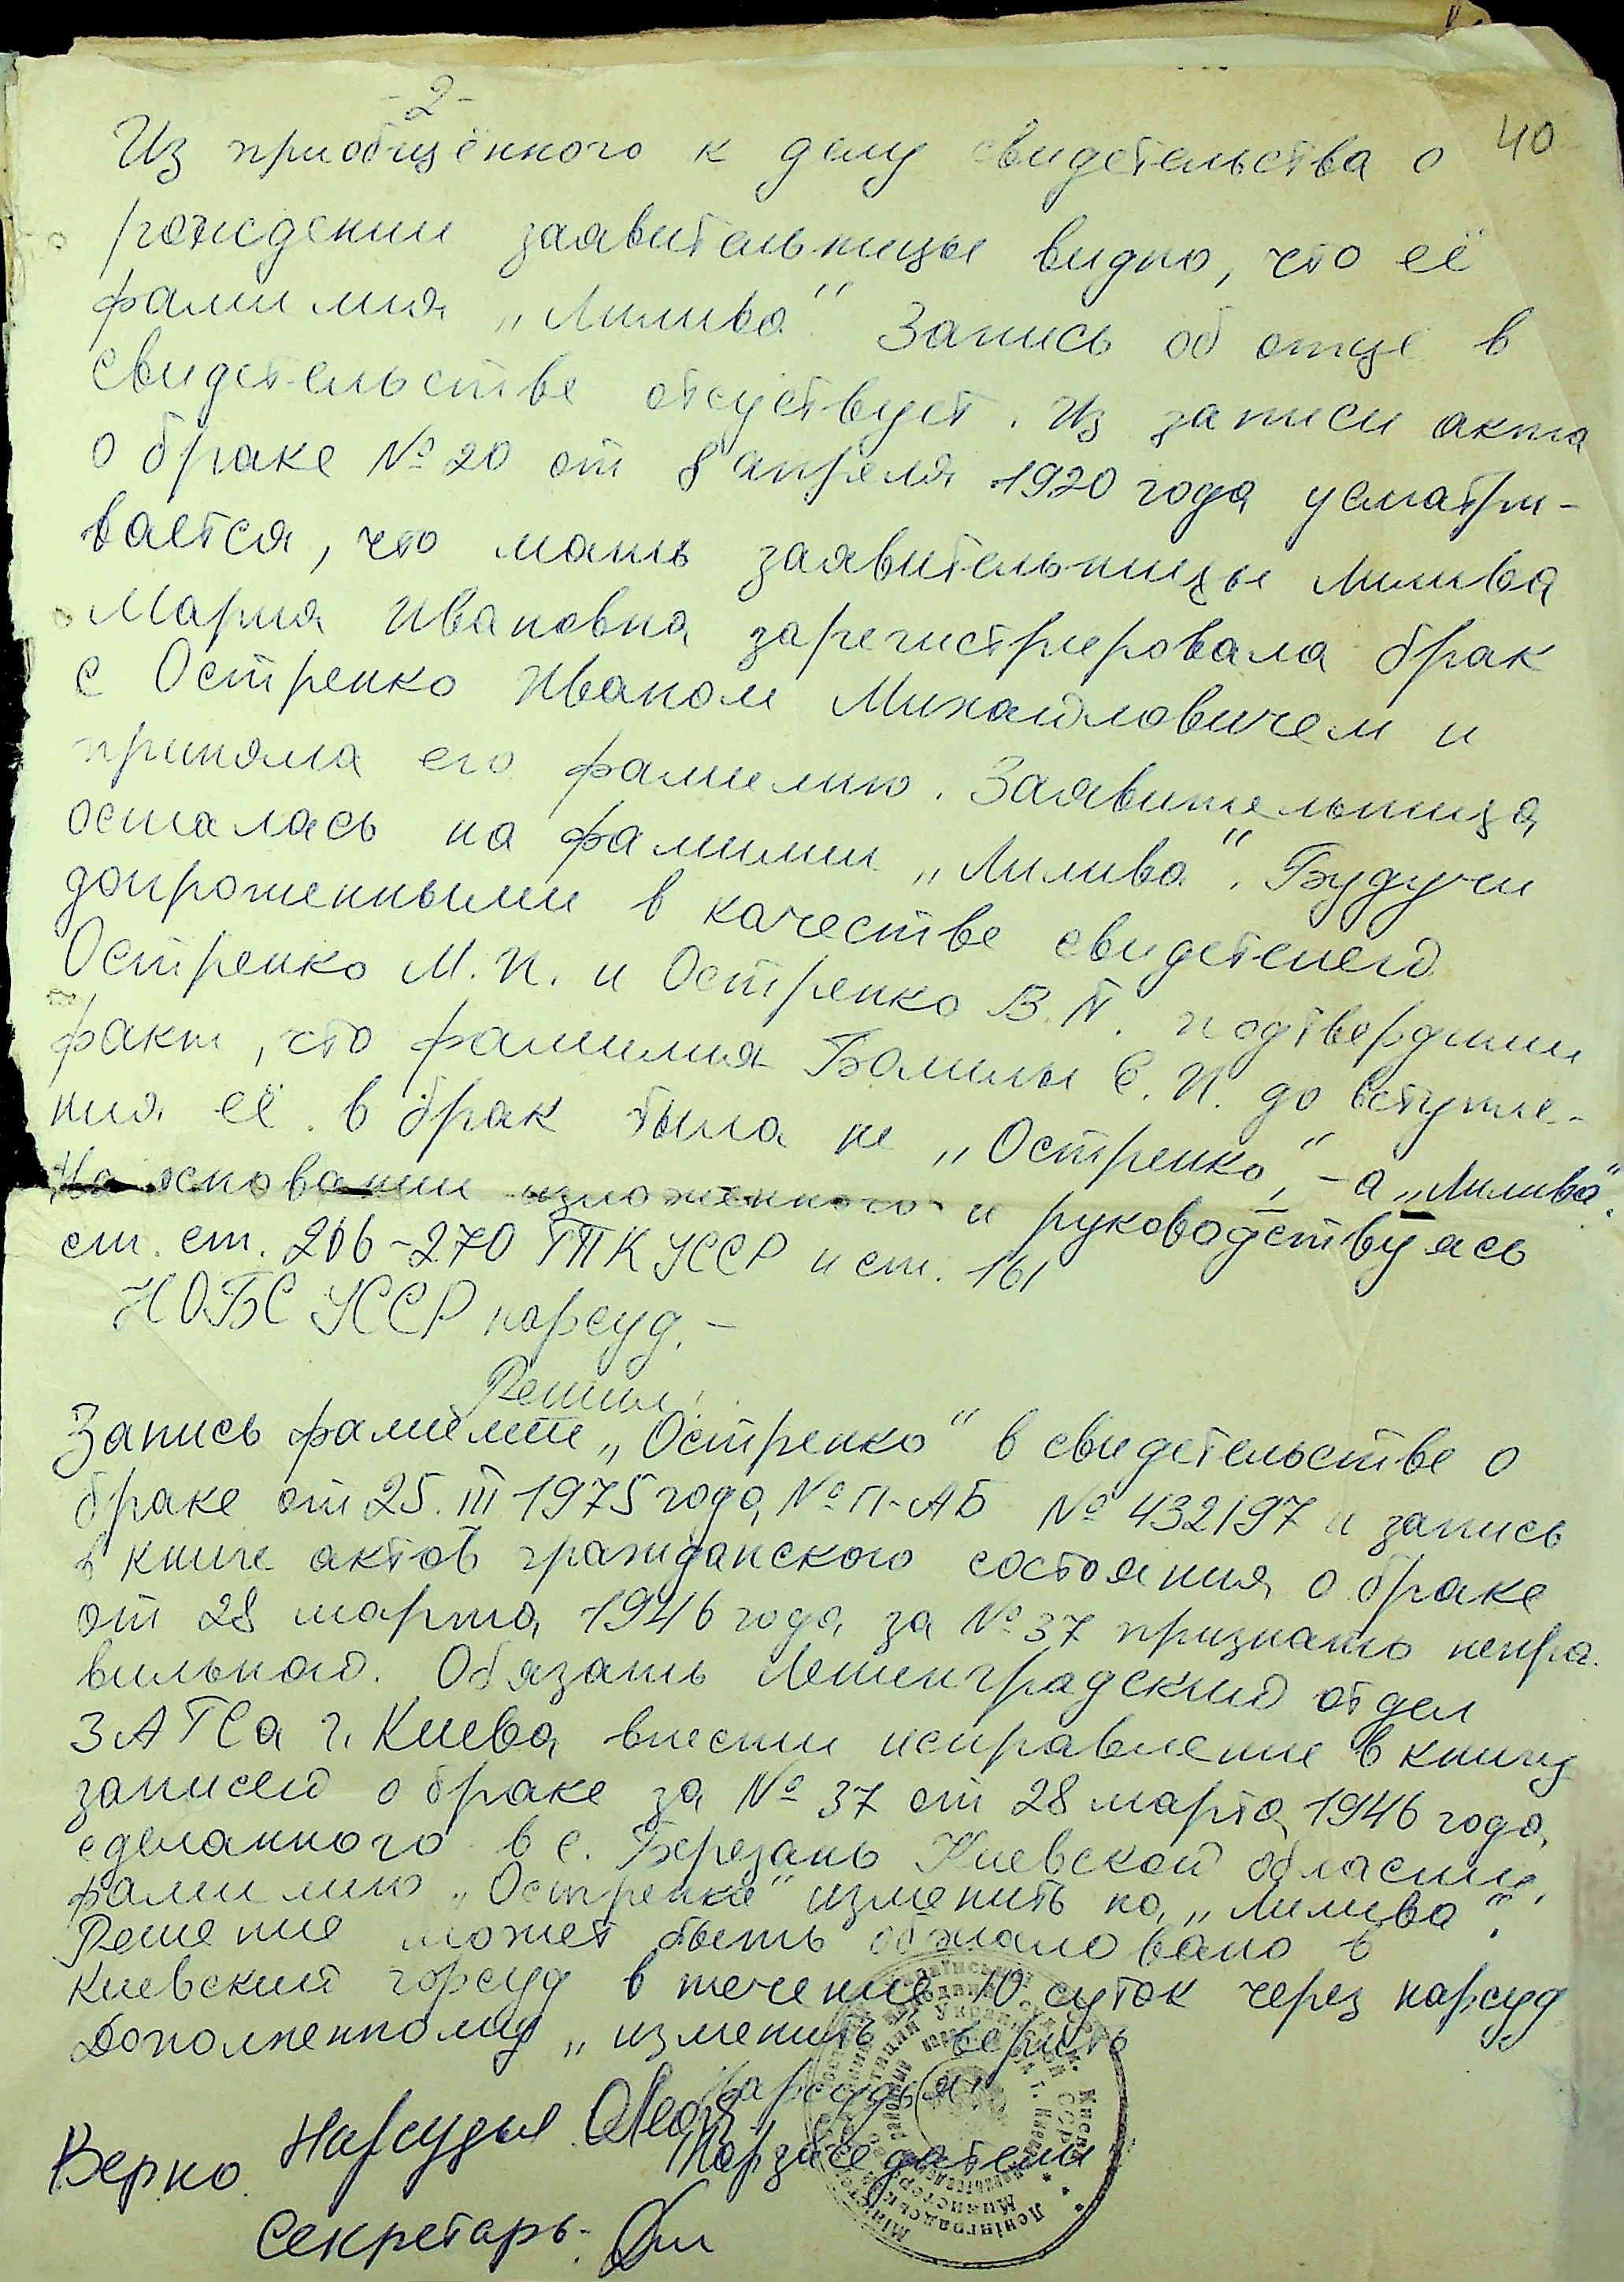 -2-
40
Из приобщённого к делу свидетельства о
рождении заявительницы видно, что её
фамилия „Лилива" Запись об отце в
свидетельстве отсуствует. Из записи акта
о браке № 20 от 8 апреля 1920 года усматри-
вается, что мать заявительницы Лилива
Мария Ивановна зарегистрировала брак
с Остренко Иваном Михайловичем и
приняла его фамилию. Заявительница
осталась на фамилии „Лилива". Будучи
допрошенными в качестве свидетелей
Остренко М.И. и Остренко В.И. подтвердили
факт, что фамилия С. И. до вступле-
ния её в брак была не „Остренко," – а „Лилива".
На основании изложенного и руководствуясь
ст. ст. 206-270 ГПК УССР и ст. 161
КОБС УССР нарсуд. –
Решил:
Запись фамилии „Остренко" в свидетельстве о
браке от 25.III 1975 года № П-АБ № 432197 и запись
в книге актов гражданского состояния о браке
от 28 марта 1946 года за № 37 признать непра-
вильной. Обязать Ленинградский отдел
ЗАГСа г. Киева внести исправление в книгу
записей о браке за № 37 от 28 марта 1946 года,
сделанного в с. Березань Киевской области,
фамилию „Остренко" изменить на „Лилива".
Решение может быть обжаловано в
Киевский горсуд в течение 10 суток через нарсуд
Дополненному „изменить" верить
Нарсудья
Нарсудья
Нарзаседатели
Верно.
Секретарь-